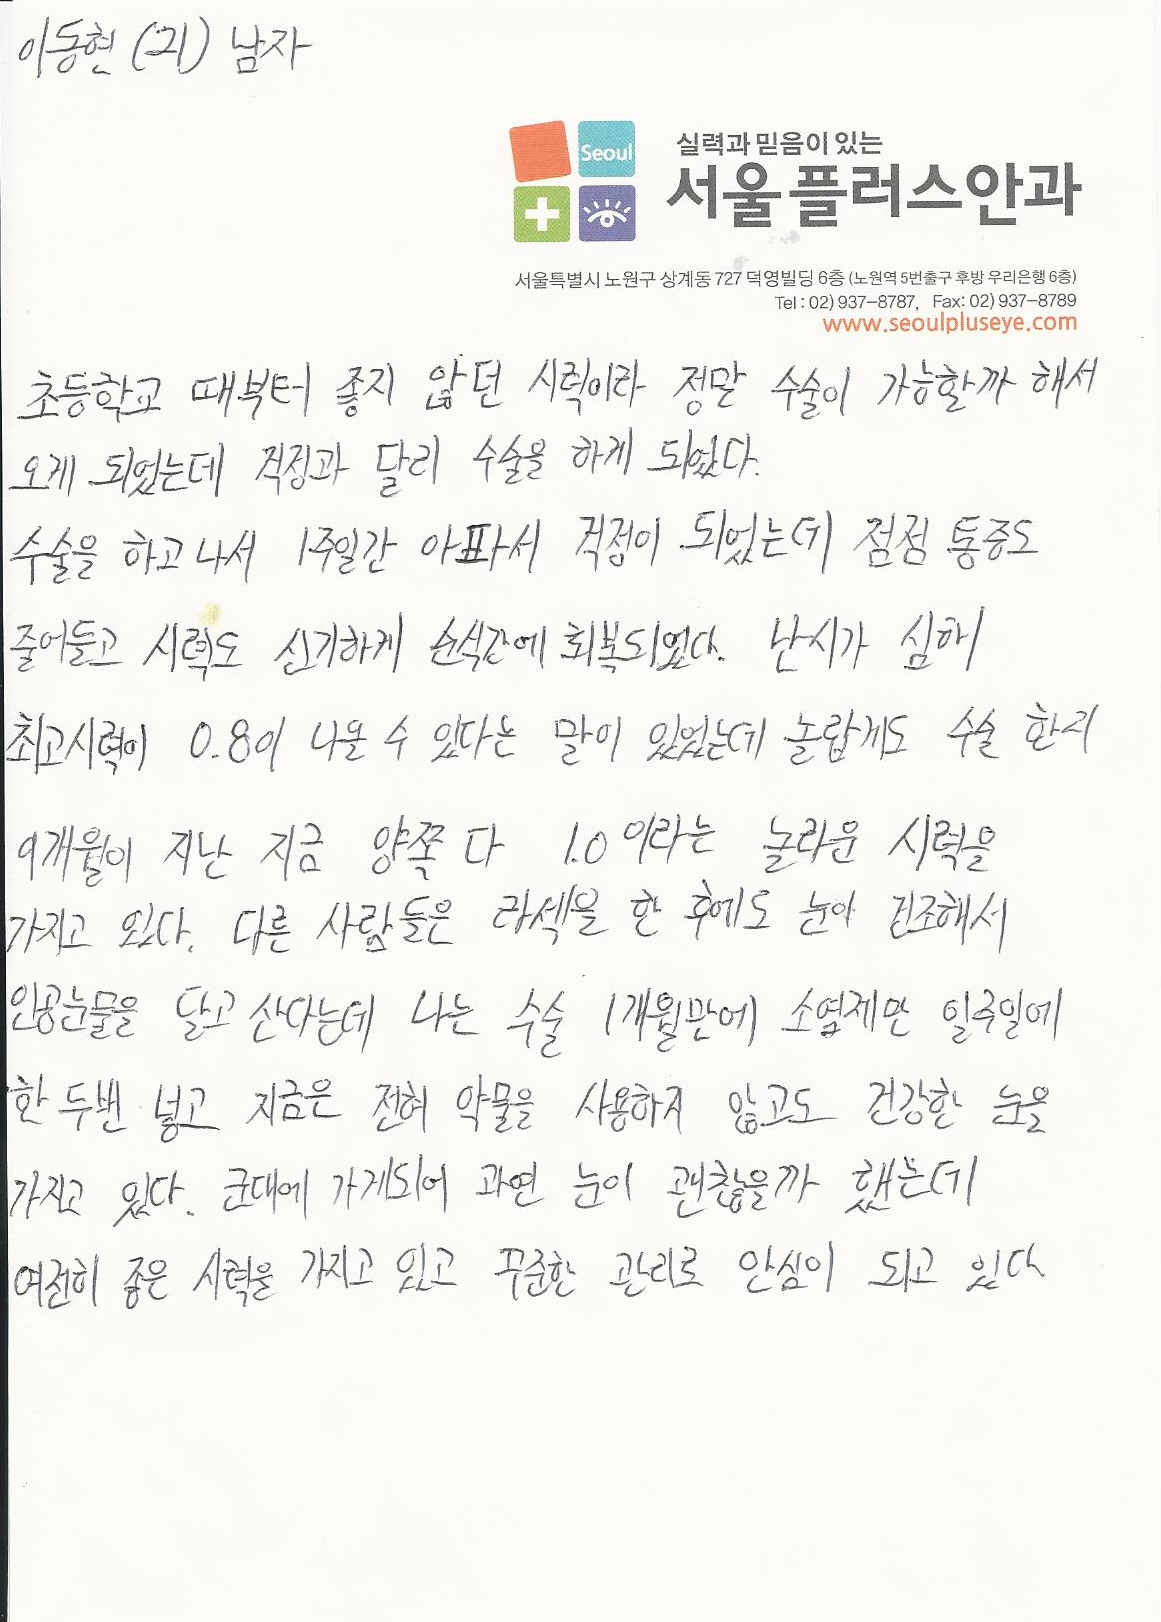 이동현 (21) 남자
Seoul
실력과 믿음이 있는
서울플러스안과
서울특별시 노원구 상계동 727 덕영빌딩 6층 (노원역 5번출구 후방 우리은행 6층)
Tel : 02) 937-8787, Fax: 02) 937-8789
www.seoulpluseye.com
초등학교 때부터 좋지 않던 시력이라 정말 수술이 가능할까 해서
오게 되었는데 걱정과 달리 수술을 하게 되었다.
수술을 하고 나서 1주일간 아파서 걱정이 되었는데 점점 통증도
줄어들고 시력도 신기하게 순식간에 회복되었다. 난시가 심해
최고시력이 0.8이 나올 수 있다는 말이 있었는데 놀랍게도 수술 한지
9개월이 지난 지금 양쪽 다 1.0이라는 놀라운 시력을
가지고 있다. 다른 사람들은 라섹을 한 후에도 눈이 건조해서
인공눈물을 달고 산다는데 나는 수술 1개월만에 소염제만 일주일에
한 두번 넣고 지금은 전혀 약물을 사용하지 않고도 건강한 눈을
가지고 있다. 군대에 가게되어 과연 눈이 괜찮을까 했는데
여전히 좋은 시력을 가지고 있고 꾸준한 관리로 안심이 되고 있다